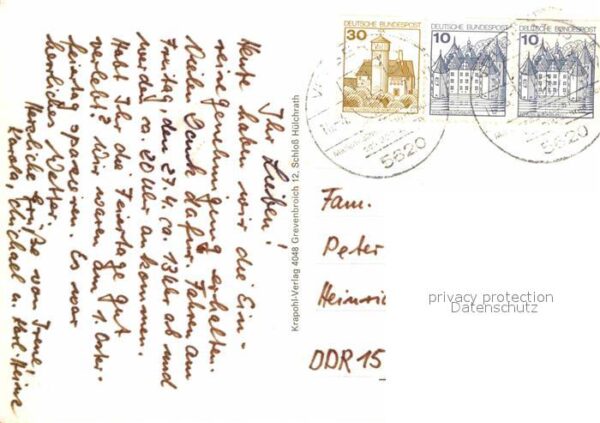 Ihr Lieben!
Heute haben wir die Ein-
reisegenehmigung erhalten.
Vielen Dank dafür. Fahren am
Freitag, den 27.4. ca. 13 Uhr ab und
werden ca. 20 Uhr ankommen.
Habt Ihr die Feiertage gut
verlebt? Wir waren am 1. Oster-
feiertag spazieren. Es war
herrliches Wetter.
Herzliche Grüße von Irene!
Michael u. Karl-Heinz
Krapohl-Verlag 4048 Grevenbroich 12, Schloß Hülchrath
30
DEUTSCHE BUNDESPOST
10
DEUTSCHE BUNDESPOST
10
DEUTSCHE BUNDESPOST
5620
5620
Fam.
Peter
Heinric
DDR 15
privacy protection
Datenschutz